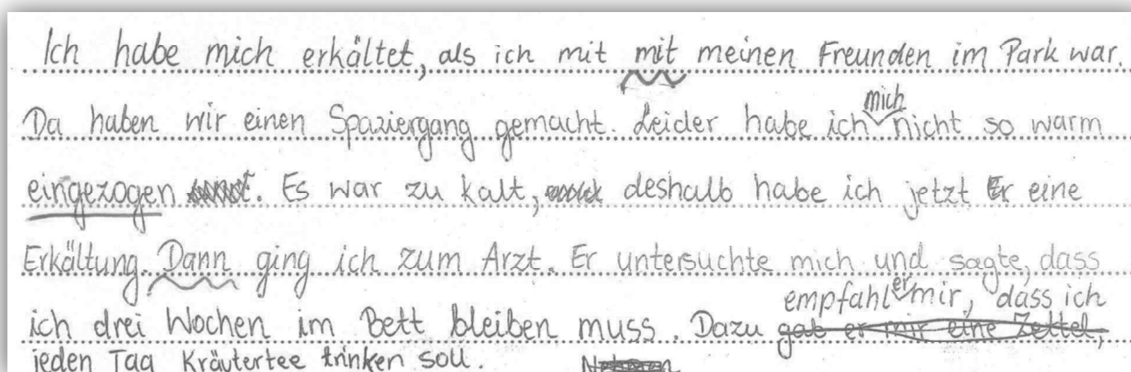 Ich habe mich erkältet, als ich mit mit meinen Freunden im Park war.
Da haben wir einen Spaziergang gemacht. Leider habe ich mich nicht so warm
eingezogen. Es war zu kalt, deshalb habe ich jetzt Er eine
Erkältung. Dann ging ich zum Arzt. Er untersuchte mich und sagte, dass
ich drei Wochen im Bett bleiben muss. Dazu gab er mir eine Zettel,
empfahl er mir, dass ich
jeden Tag Kräutertee trinken soll.